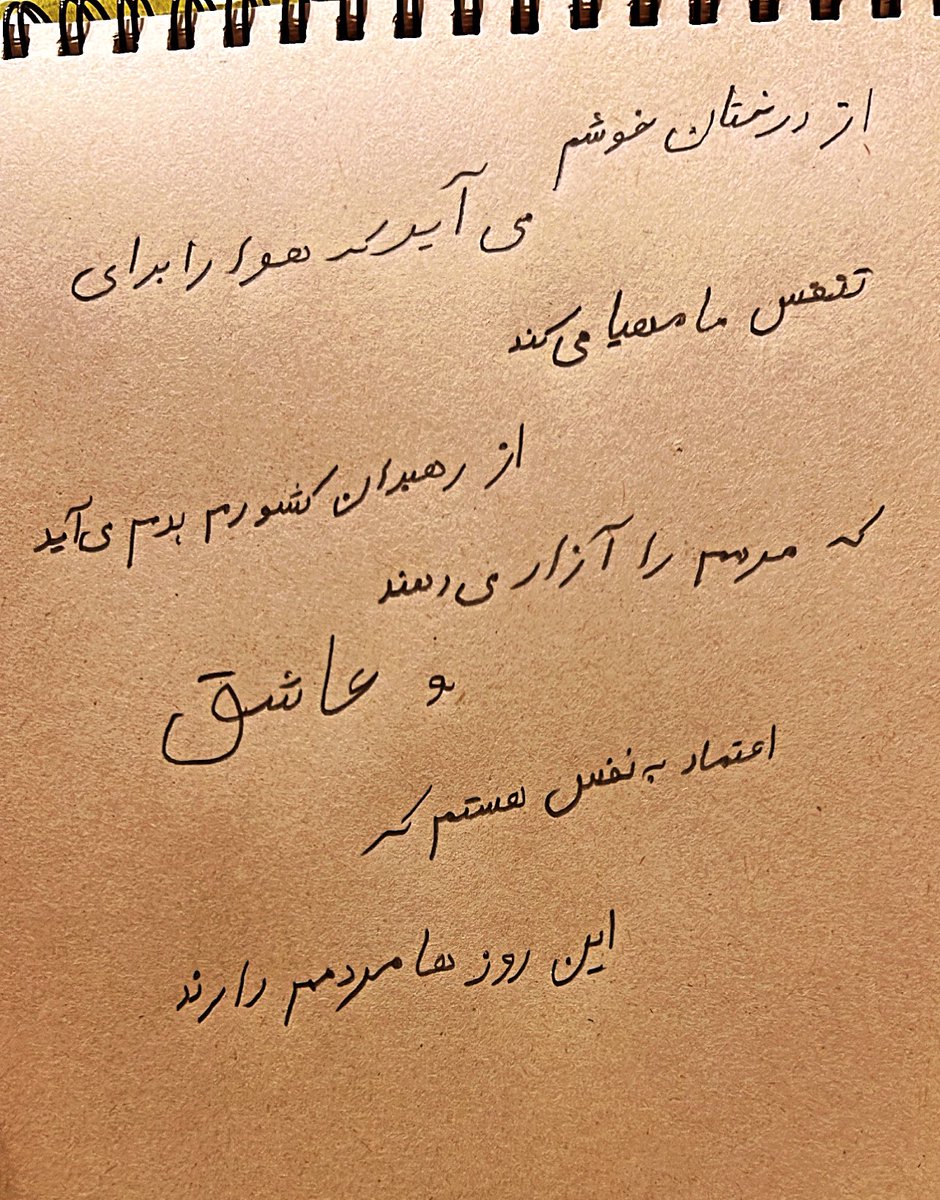 از درختان خوشم
می آید که هوا را برای
تنفس ما مهیا می کند
از رهبران کشورم بدم می آید
که مردم را آزار می دهند
و عاشق
اعتماد به نفس هستم که
این روز ها مردمم دارند